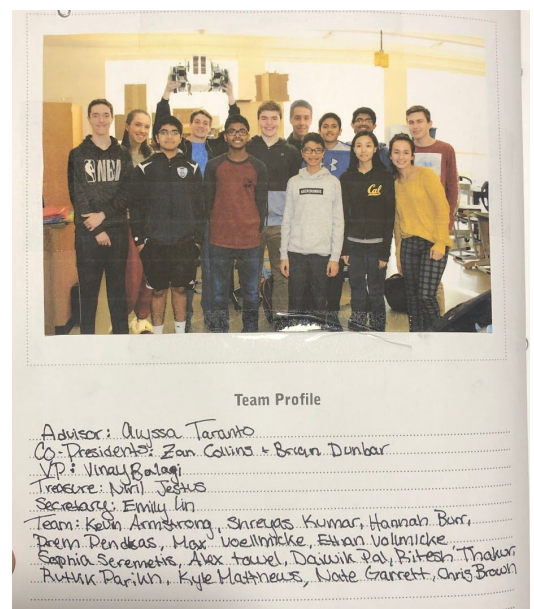 NBA
Cal
Team Profile
Advisor: Alyssa Taranto
Co-Presidents: Zan Collins + Brian Dunbar
VP: Vinay Balagi
Treasure: Niril Jestus
Secretary: Emily Lin
Team: Kevin Armstrong, Shreyas Kumar, Hannah Burr,
Prem Dendeas, Max Voellmicke, Ethan Vollmicke
Sophia Seremetis, Alex Towel, Daiwik Pal, Ritesh Thakur
Ruthik Parikh, Kyle Matthews, Nate Garrett, Chris Brown